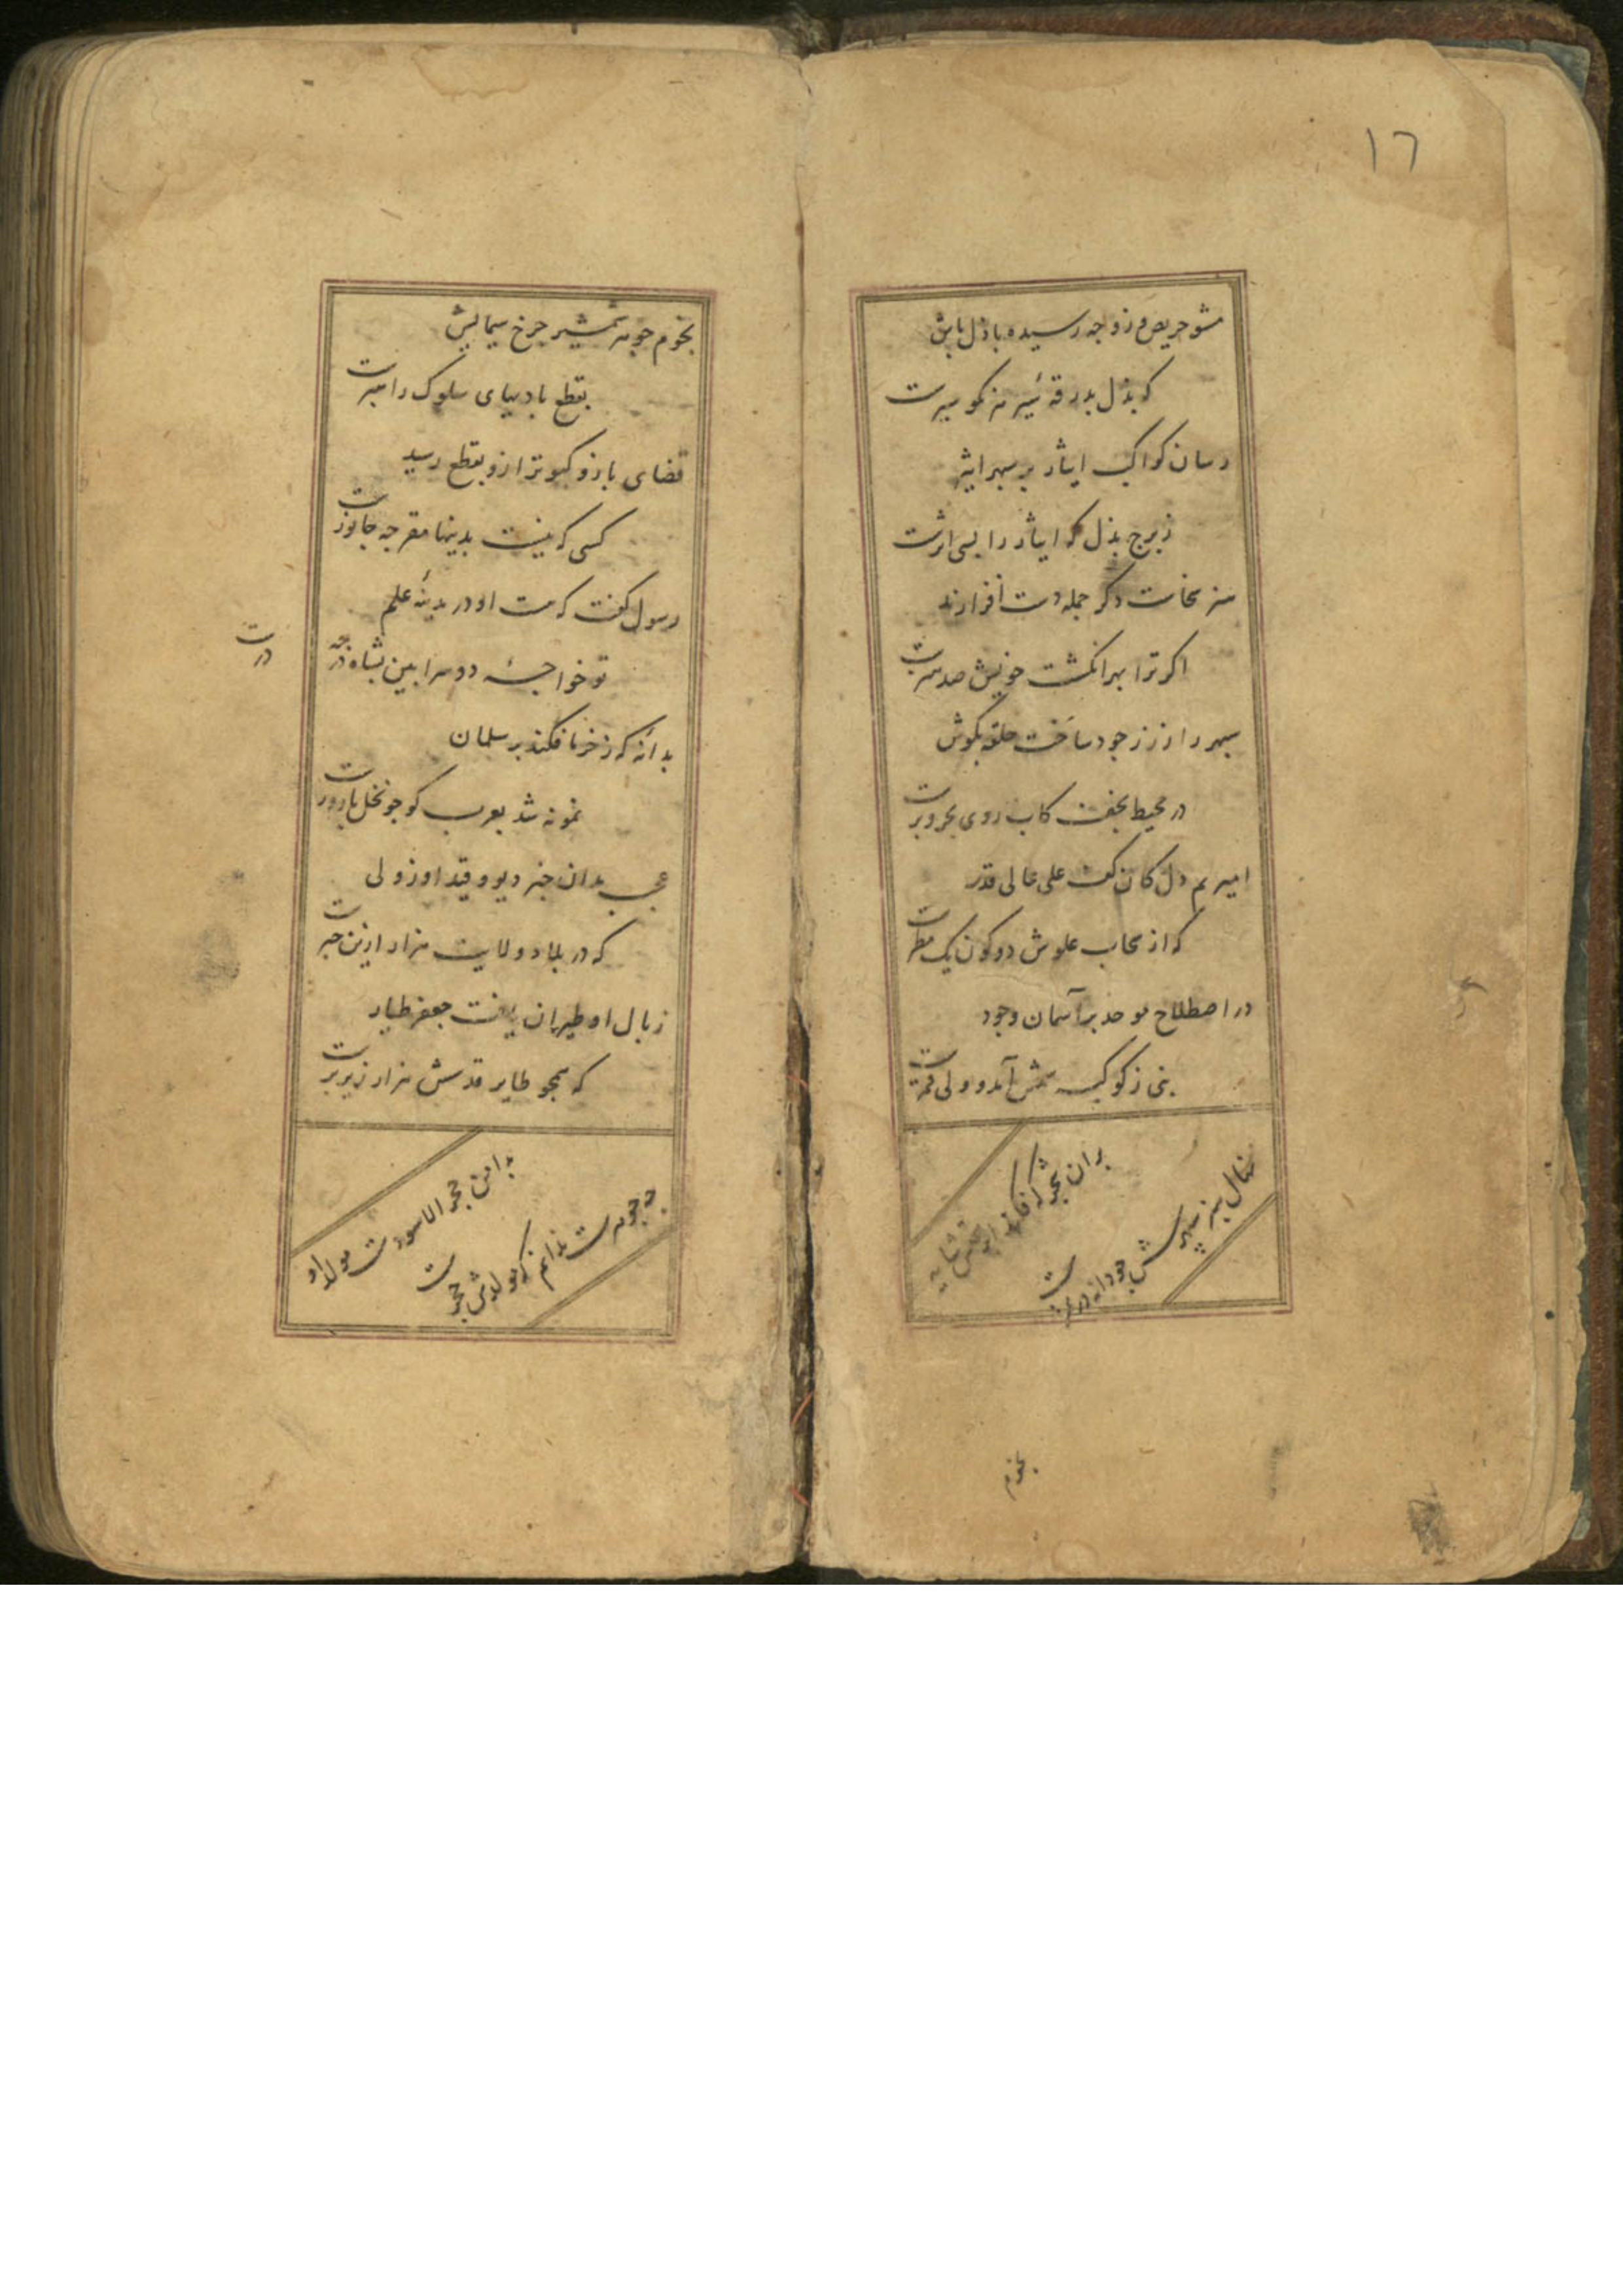 ١٦
مشو حریص و زوجه رسیده باذل باش
که بذل بدرقهٔ سیر مه نکو سیرت
رسان کواکب ایثار بر سپهر اثیر
ز برج بذل که ایثار را بسی اثرست
سر سخاست دگر جمله دست افزارند
اگر ترا بهر انگشت خویش صد هنرست
سپهر را ز زر جود ساخت حلقه بگوش
در محیط نجف کاب روی بحر و برست
امیر یم دل کان کف علی عالی قدر
که از سحاب علوش دو کون یک مطرست
در اصطلاح موحد بر آسمان وجود
نبی ز کوکبه شمس آمد و ولی قمرست
نهال سبز سپهرش چو دانه در ثمرست
بران شجر که فکند آفتابش سایه
نجوم
نجوم جوهر شمشیر چرخ سیمایش
بقطع بادیهای سلوک راهبرست
قضای باز و کبوتر ازو بقطع رسید
کسی که نیست بدینها مقر چه جانورست
رسول گفت که هست او در مدینهٔ علم
تو خواجهٔ دو سرا بین بشاه در چه
درست
بدانه که ز خرما فکند بر سلمان
نمونه شد بعرب کو چو نخل بارورست
عجب بدان خبر دیو و قید او ز ولی
که در بلاد ولایت هزار ازین خبرست
ز بال او طیران یافت جعفر طیار
که همچو طایر قدسش هزار زیر پرست
بدامن حجر الاسودست مولد او
چه جوهرست ندانم که مولدش حجرست